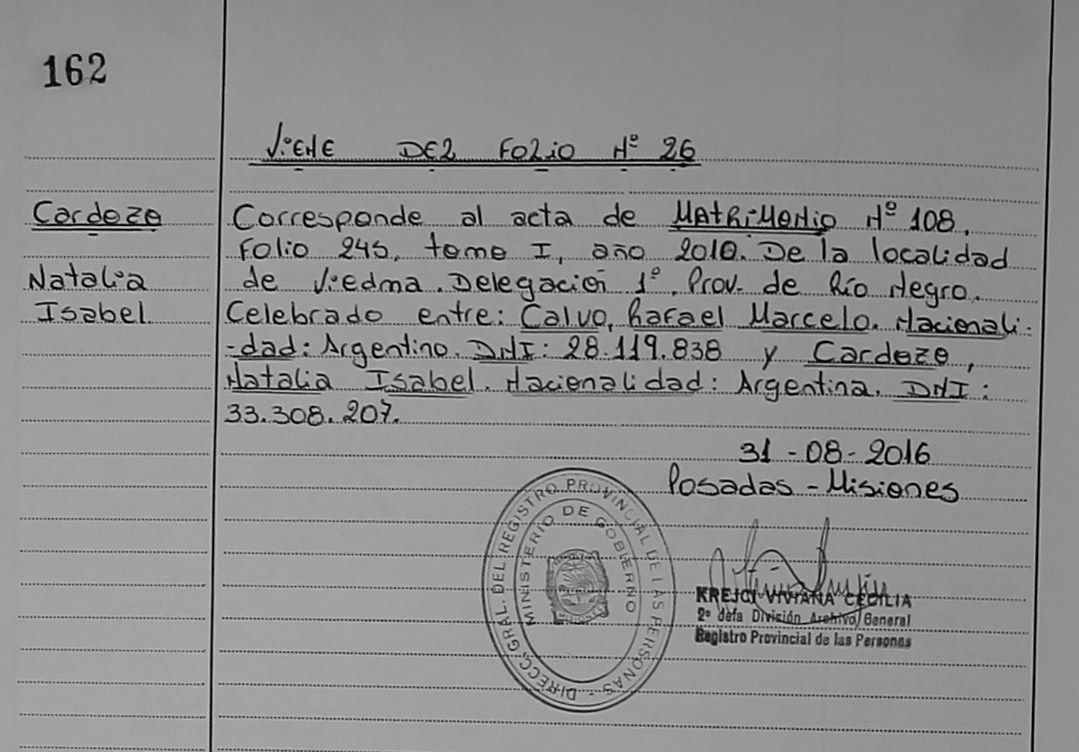 162
Viene DEL FOLIO Nº 26
Cardozo
Natalia
Isabel
Corresponde al acta de Matrimonio Nº 108.
Folio 245, tomo I, año 2010. De la localidad
de Viedma. Delegación 1º. Prov. de Río Negro.
Celebrado entre: Calvo, Rafael Marcelo. Nacionali-
-dad: Argentino. DNI: 28.119.838 y Cardozo,
Natalia Isabel. Nacionalidad: Argentina. DNI:
33.308.207.
31-08-2016
Posadas - Misiones
DIRECC. GRAL. DEL REGISTRO PROVINCIAL DE LAS PERSONAS
MINISTERIO DE GOBIERNO
KREJCI VIVIANA CECILIA
2º Jefa División Archivo General
Registro Provincial de las Personas